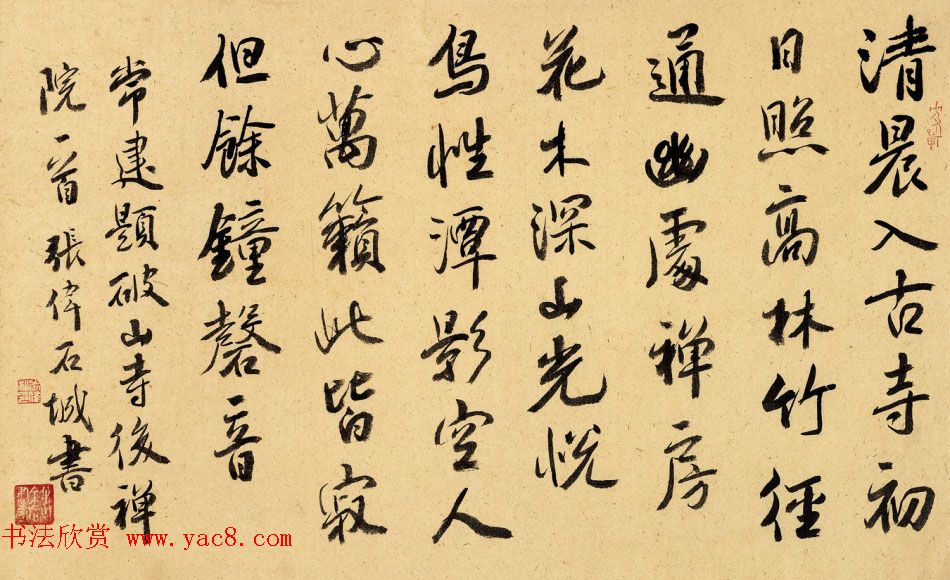 清晨入古寺初
日照高林竹徑
通幽處禪房
花木深山光悦
鳥性潭影空人
心萬籟此皆寂
但餘鐘磬音
常建題破山寺後禅
院一首張偉石城書
书法欣赏 www.yac8.com